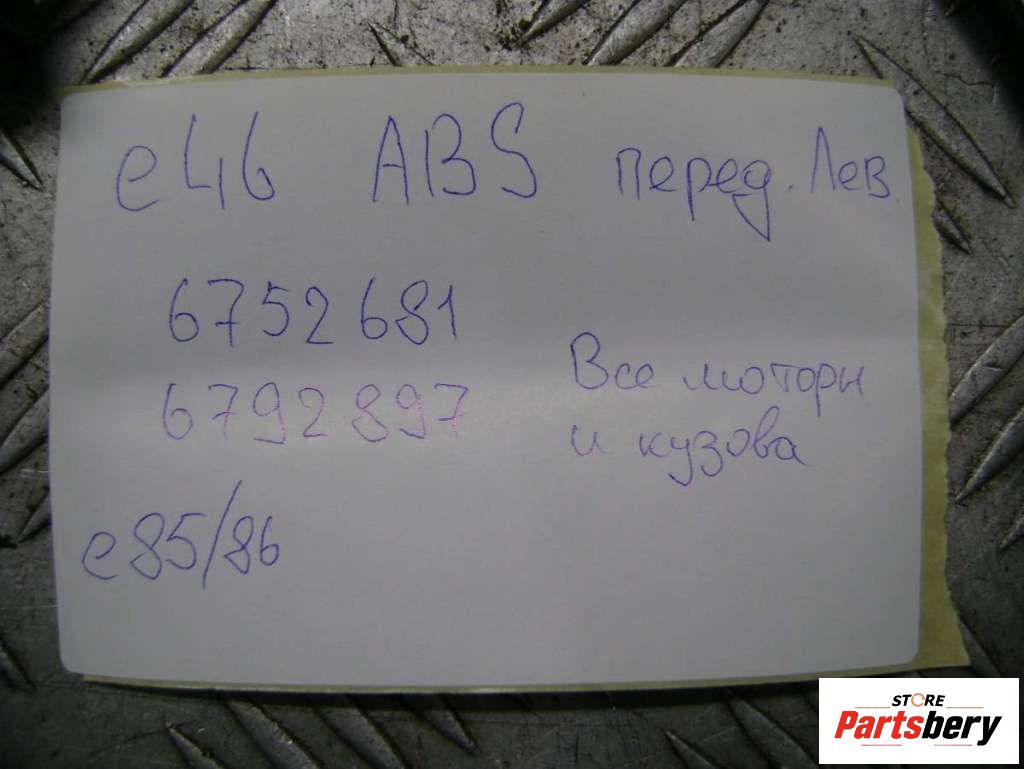 e46 ABS перед. Лев.
6752681
6792897
Все моторы
и кузова
e85/86
STORE
Partsbery